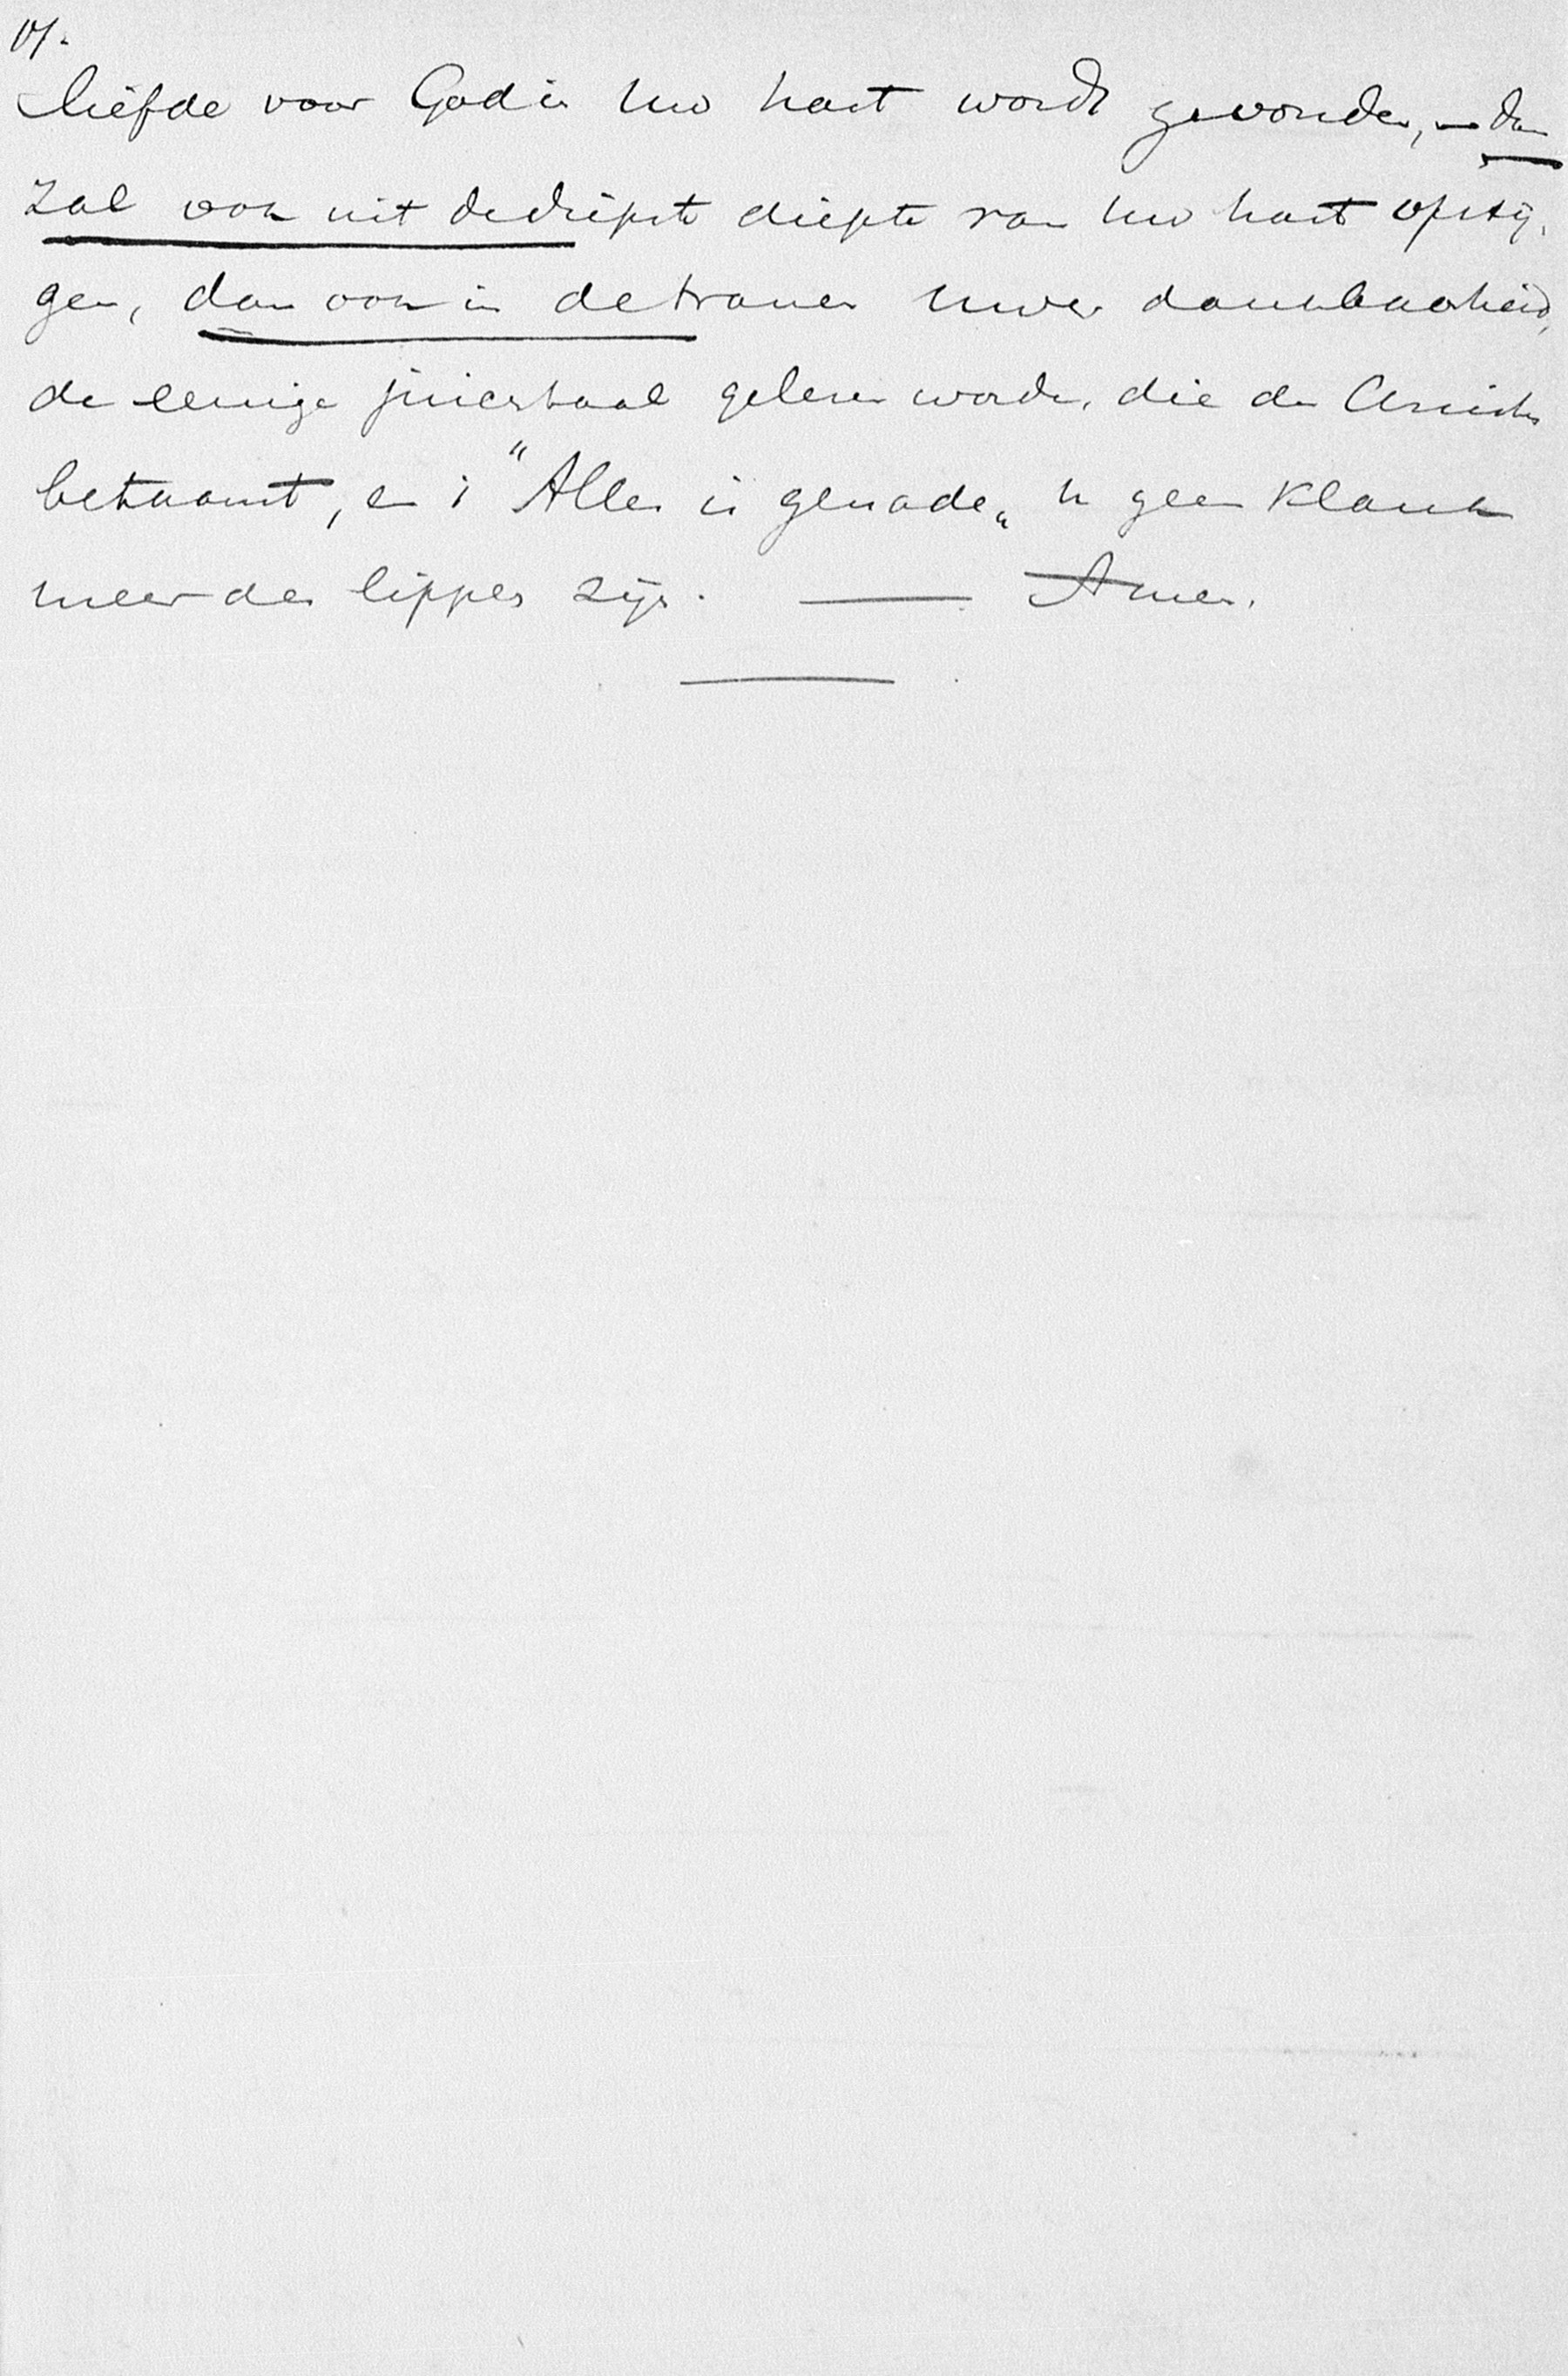 liefde voor God in Uw hart wordt gevonden, – dan
zal ook uit de diepste diepte van Uw hart opstij-
gen, dan ook in de tranen Uwer dankbaarheid,
de eenige gelezen worden, die den Christen
betaamt, en 't "Alles is genade" U geen klank
meer der lippen zijn. — Amen.